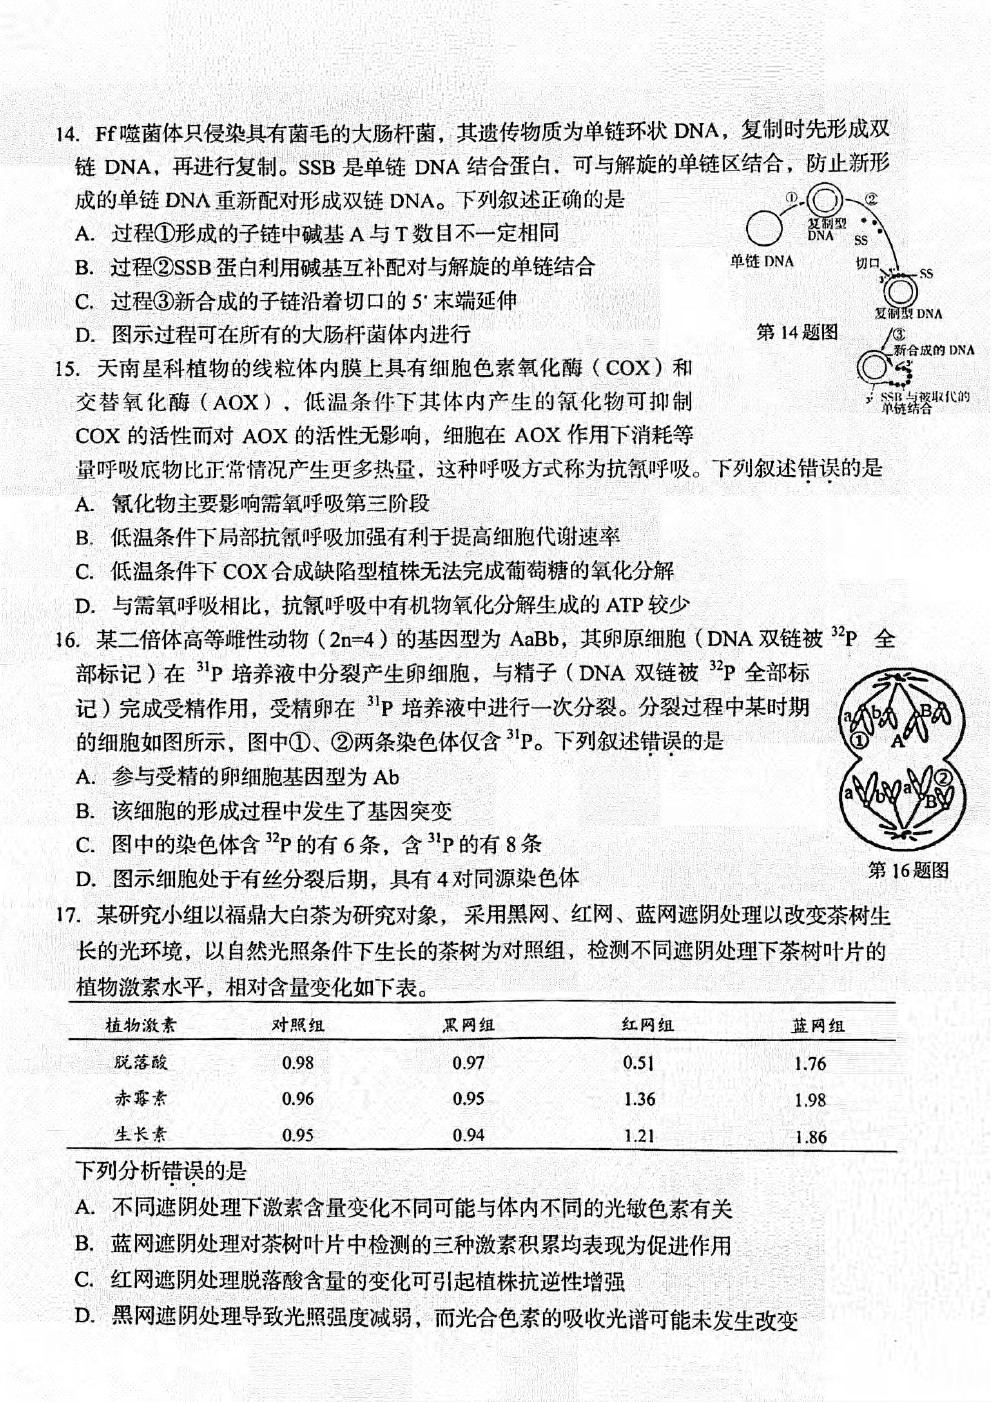 14. Ff噬菌体只侵染具有菌毛的大肠杆菌，其遗传物质为单链环状 DNA，复制时先形成双
链 DNA，再进行复制。SSB 是单链 DNA 结合蛋白，可与解旋的单链区结合，防止新形
成的单链 DNA 重新配对形成双链 DNA。下列叙述正确的是
A. 过程①形成的子链中碱基 A 与 T 数目不一定相同
B. 过程②SSB 蛋白利用碱基互补配对与解旋的单链结合
C. 过程③新合成的子链沿着切口的 5' 末端延伸
D. 图示过程可在所有的大肠杆菌体内进行
单链 DNA
①
复制型
DNA
②
SS
切口
SS
复制型 DNA
③
新合成的 DNA
SSB 与被取代的
单链结合
第 14 题图
15. 天南星科植物的线粒体内膜上具有细胞色素氧化酶（COX）和
交替氧化酶（AOX），低温条件下其体内产生的氰化物可抑制
COX 的活性而对 AOX 的活性无影响，细胞在 AOX 作用下消耗等
量呼吸底物比正常情况产生更多热量，这种呼吸方式称为抗氰呼吸。下列叙述错误的是
A. 氰化物主要影响需氧呼吸第三阶段
B. 低温条件下局部抗氰呼吸加强有利于提高细胞代谢速率
C. 低温条件下 COX 合成缺陷型植株无法完成葡萄糖的氧化分解
D. 与需氧呼吸相比，抗氰呼吸中有机物氧化分解生成的 ATP 较少
16. 某二倍体高等雌性动物（2n=4）的基因型为 AaBb，其卵原细胞（DNA 双链被 ³²P 全
部标记）在 ³¹P 培养液中分裂产生卵细胞，与精子（DNA 双链被 ³²P 全部标
记）完成受精作用，受精卵在 ³¹P 培养液中进行一次分裂。分裂过程中某时期
的细胞如图所示，图中①、②两条染色体仅含 ³¹P。下列叙述错误的是
A. 参与受精的卵细胞基因型为 Ab
B. 该细胞的形成过程中发生了基因突变
C. 图中的染色体含 ³²P 的有 6 条，含 ³¹P 的有 8 条
D. 图示细胞处于有丝分裂后期，具有 4 对同源染色体
a b B
① A
a b a ②
B
第 16 题图
17. 某研究小组以福鼎大白茶为研究对象，采用黑网、红网、蓝网遮阴处理以改变茶树生
长的光环境，以自然光照条件下生长的茶树为对照组，检测不同遮阴处理下茶树叶片的
植物激素水平，相对含量变化如下表。
植物激素 对照组 黑网组 红网组 蓝网组
脱落酸 0.98 0.97 0.51 1.76
赤霉素 0.96 0.95 1.36 1.98
生长素 0.95 0.94 1.21 1.86
下列分析错误的是
A. 不同遮阴处理下激素含量变化不同可能与体内不同的光敏色素有关
B. 蓝网遮阴处理对茶树叶片中检测的三种激素积累均表现为促进作用
C. 红网遮阴处理脱落酸含量的变化可引起植株抗逆性增强
D. 黑网遮阴处理导致光照强度减弱，而光合色素的吸收光谱可能未发生改变